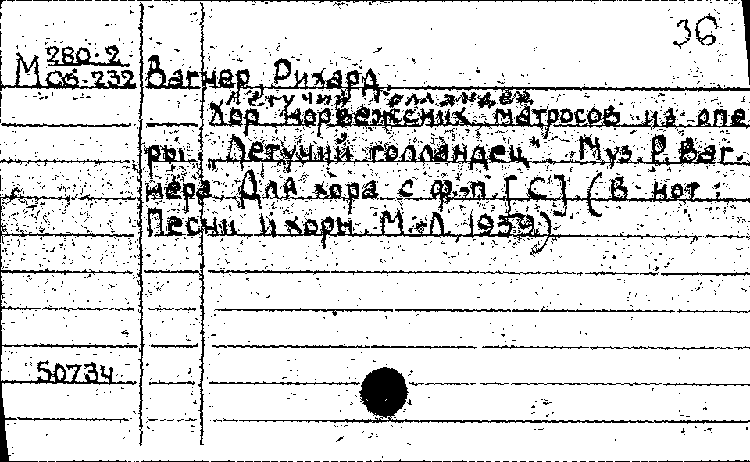 36
М 280-2
Об-232 Вагнер Рихард.
Летучий голландец
Хор норвежских матросов из опе
ры „Летучий голландец". Муз. Р. Ваг-
нера. Для хора с ф.-п. [С]. (В нот:
Песни и хоры. М.-Л. 1939)
50734